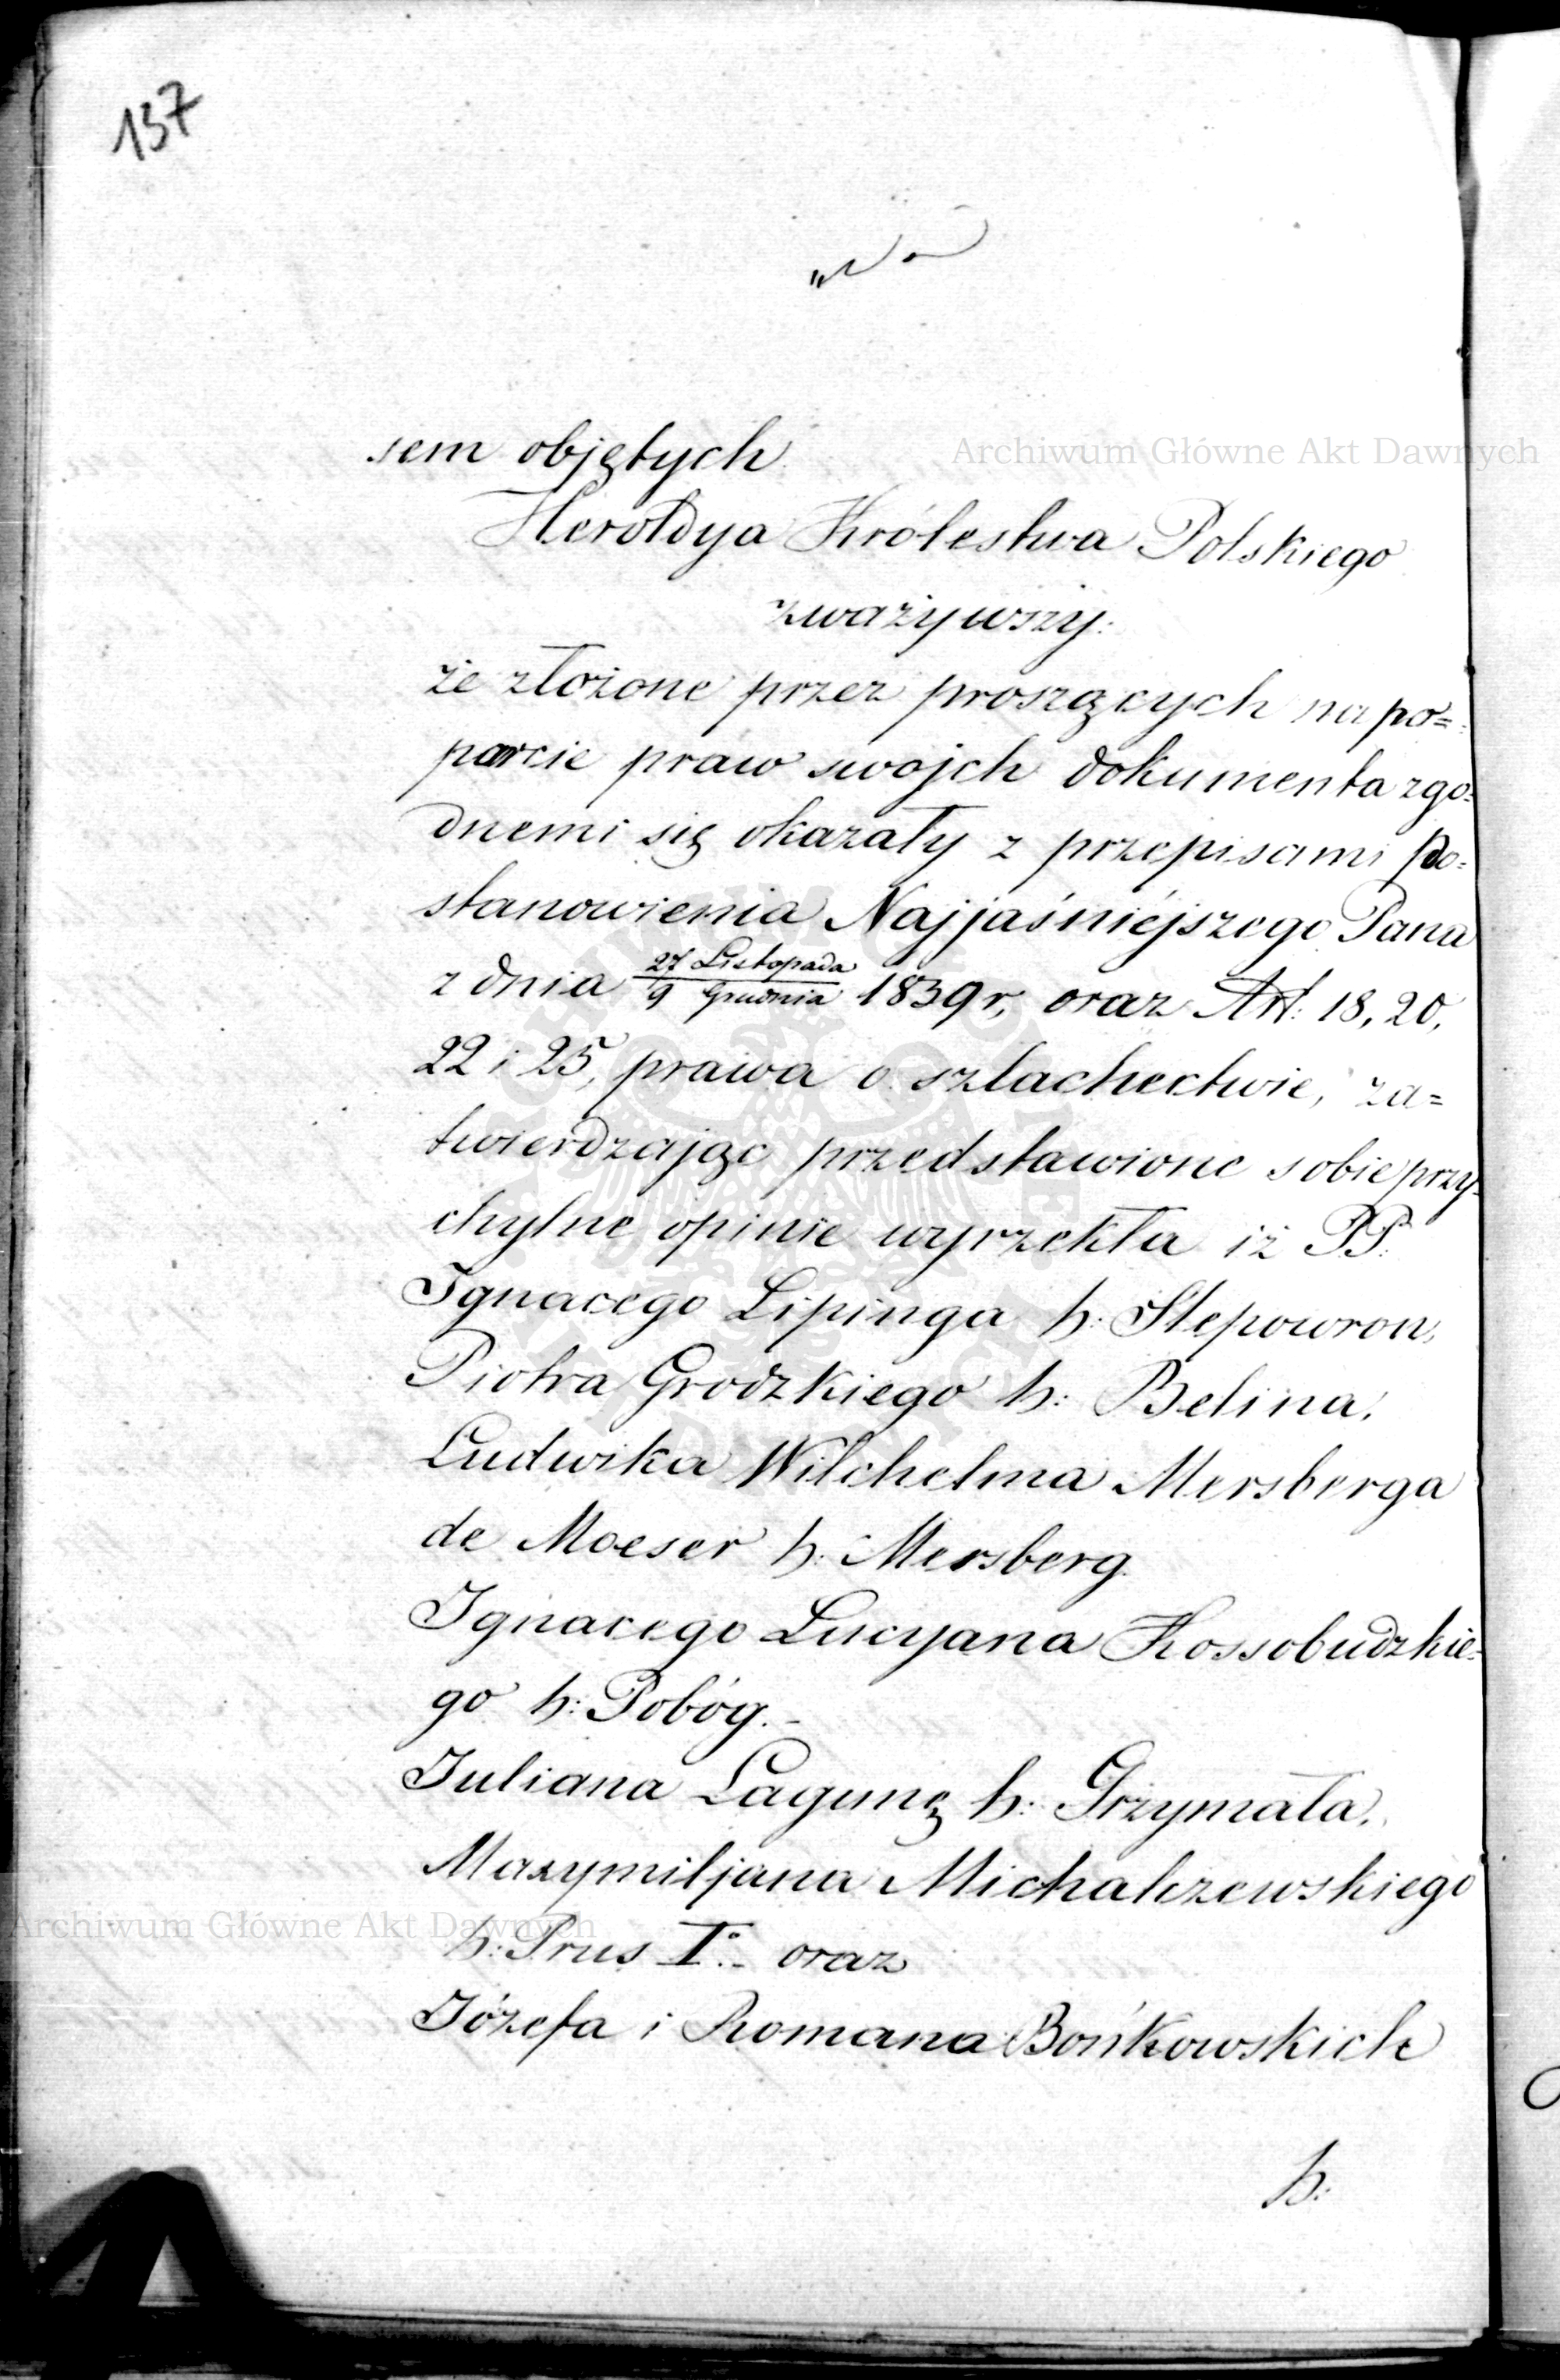 137
sem objętych
Archiwum Główne Akt Dawnych
Heroldya Królestwa Polskiego
zważywszy:
że złożone przez proszących na po=
parcie praw swojch dokumenta zgo=
dnemi się okazały z przepisami Po=
stanowienia Najjaśniéjszego Pana
z dnia 27 Listopada / 9 Grudnia 1839 r, oraz Art: 18, 20,
22 i 25, prawa o szlachectwie, za=
twierdzając przedstawione sobie przy=
chylne opinie wyrzekła iż PP:
Ignacego Lipinga h: Slepowron,
Piotra Grodzkiego h: Belina,
Ludwika Wilchelma Mersberga
de Moeser h: Mersberg.
Ignacego Lucyana Kossobudzkie=
go h: Pobóg.-
Juliana Lagunę h: Grzymała,
Maxymiljana Michalczewskiego
Archiwum Główne Akt Dawnych
h: Prus I° - oraz
Józefa i Romana Bońkowskich
h: